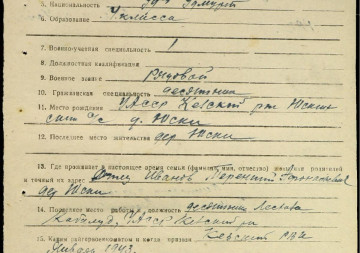 5. Национальность удмурт
6. Образование 4 класса
7. Военно-учетная специальность /
8. Должностная квалификация
9. Военное звание рядовой
10. Гражданская специальность десятник
11. Место рождения УАССР Кезский р-н Юскин
с/с д. Юски
12. Последнее место жительства дер Юски
13. Где проживает в настоящее время семья (фамилия, имя, отчество) жены или родителей
и точный их адрес Отец Иванов Терентий
дер Юски
14. Последнее место работы и должность десятник
УАССР Кезский р-н
15. Каким райгорвоенкоматом и когда призван Кезский РВК
Январь 1943